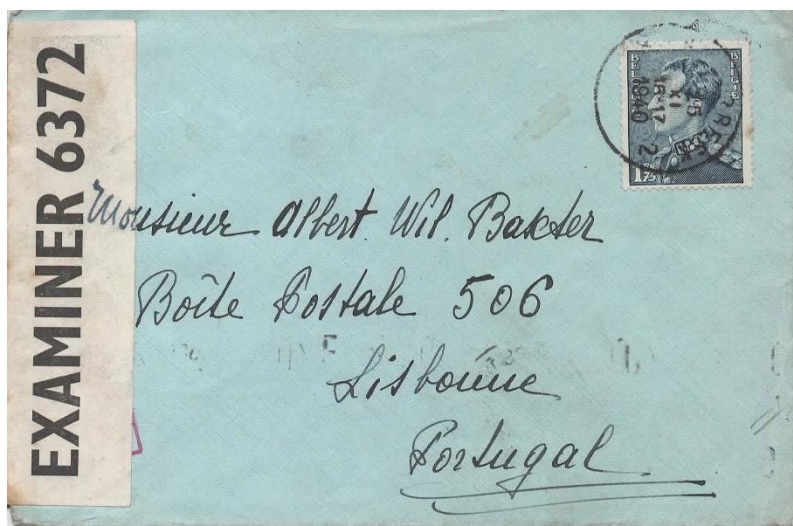 EXAMINER 6372
BELGIQUE BELGIË
15
XI
16-17
1940
2
1 75
Monsieur Albert. Wil. Bakster
Boîte Postale 506
Lisbonne
Portugal